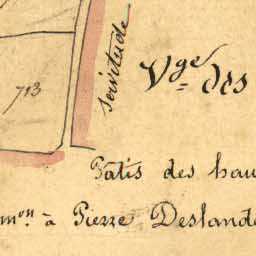 713
servitude
Vge dès
Pâtis des hau
mon à Pierre Deslande